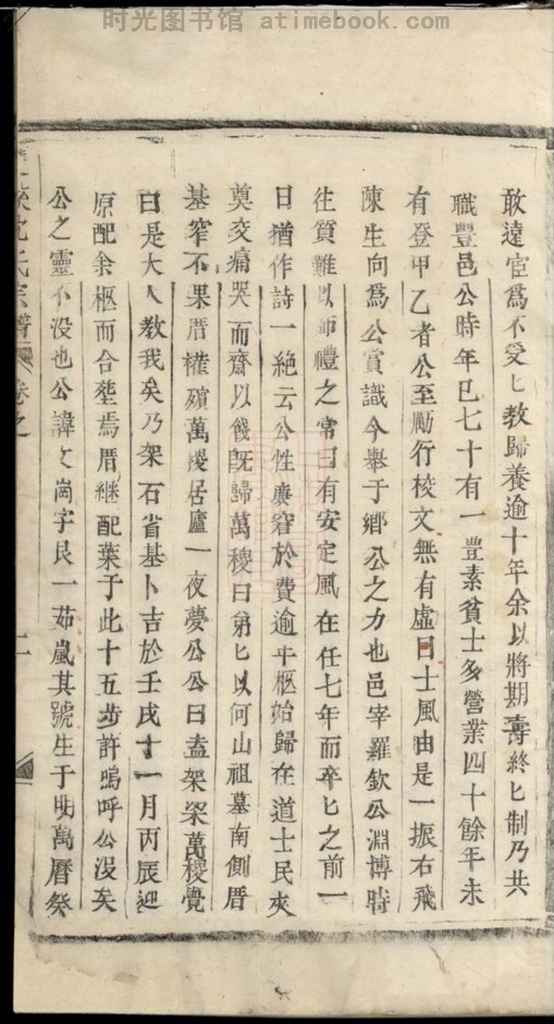 时光图书馆 atimebook.com
敢違官為不受匕教歸養逾十年余以將期壽終匕制乃共
職豐邑公時年已七十有一豐素貧士多營業四十餘年未
有登甲乙者公至勵行校文無有虛日士風由是一振右飛
陳生向為公賞識今舉于鄉公之力也邑宰羅欽公淵博時
往質難以師禮之常曰有安定風在任七年而卒匕之前一
日猶作詩一絕云公性廉窘於費逾年柩始歸在道士民夾
奠交痛哭而齋以餞既歸萬稷曰弟匕以何山祖墓南側厝
基窄不果厝權殯萬稷居廬一夜夢公公曰盍架梁萬稷覺
曰是大人教我矣乃架石省基卜吉於壬戌十一月丙辰迎
原配余柩而合塟焉厝繼配葉于此十五步許嗚呼公沒矣
公之靈不沒也公諱文崗字艮一茹嵐其號生于明萬曆癸
沈氏宗譜 卷之 二